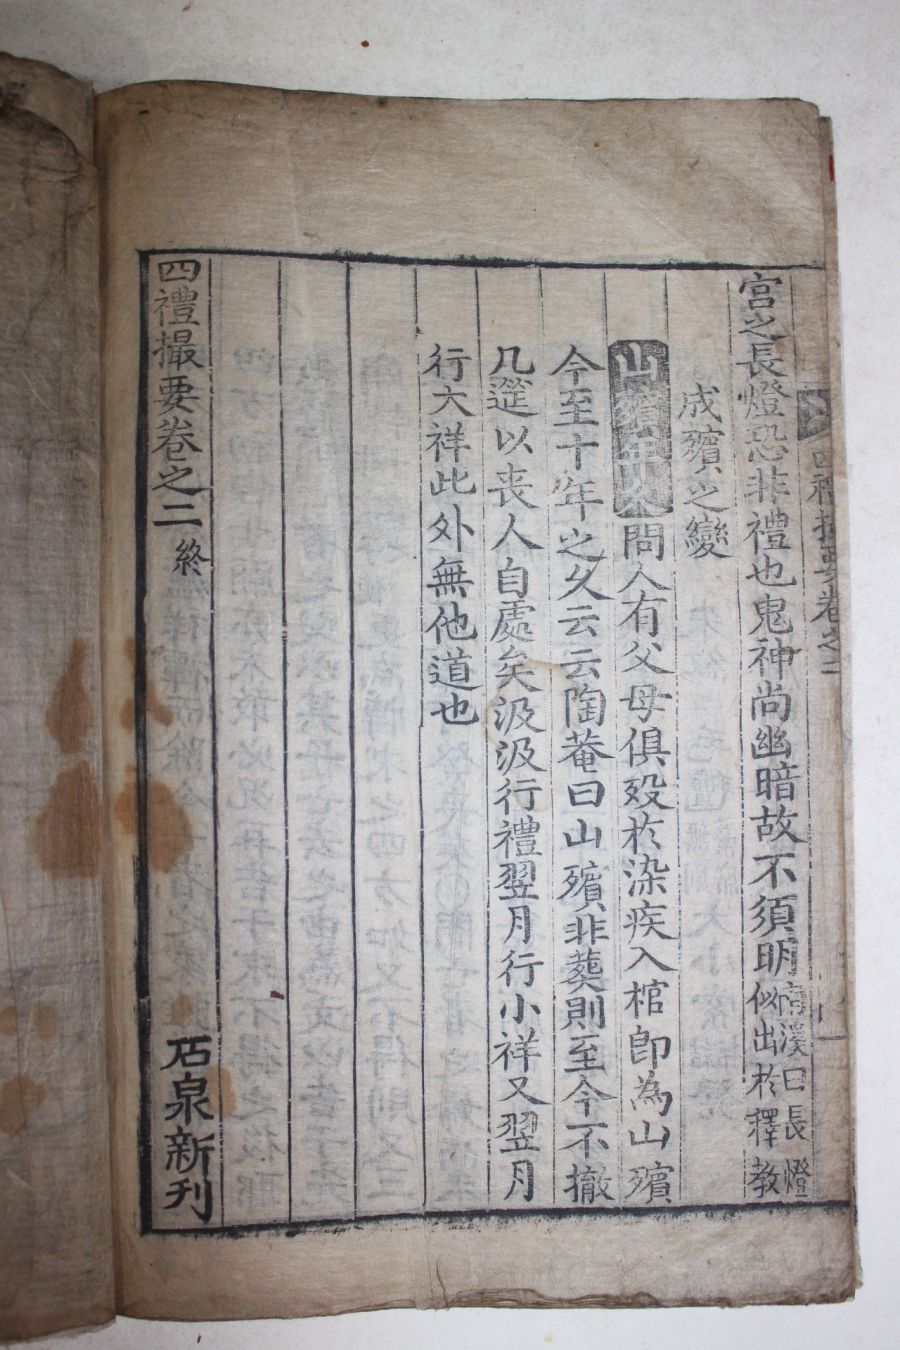 四禮撮要卷之二
宮之長燈恐非禮也鬼神尚幽暗故不須明溪曰長燈
似出於釋教
成殯之變
山殯年久問人有父母俱歿於染疾入棺卽為山殯
今至十年之久云云陶菴曰山殯非葬則至今不撤
几筵以喪人自處矣汲汲行禮翌月行小祥又翌月
行大祥此外無他道也
四禮撮要卷之二 終 石泉新刊